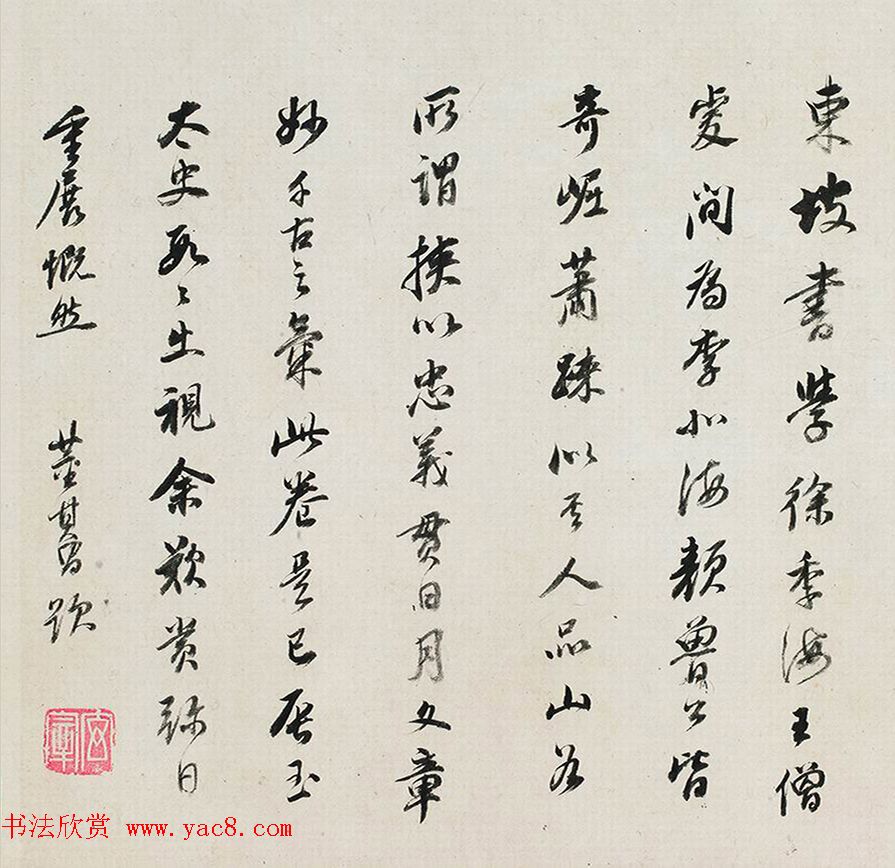 東坡書學徐季海王僧
虔間為李北海顏魯公皆
奇崛蕭踈似其人品山谷
所謂挾以忠義貫日月文章
妙千古之氣此卷是已辰玉
太史數〻出視余歎賞弥日
重展慨然 董其昌題
书法欣赏 www.yac8.com